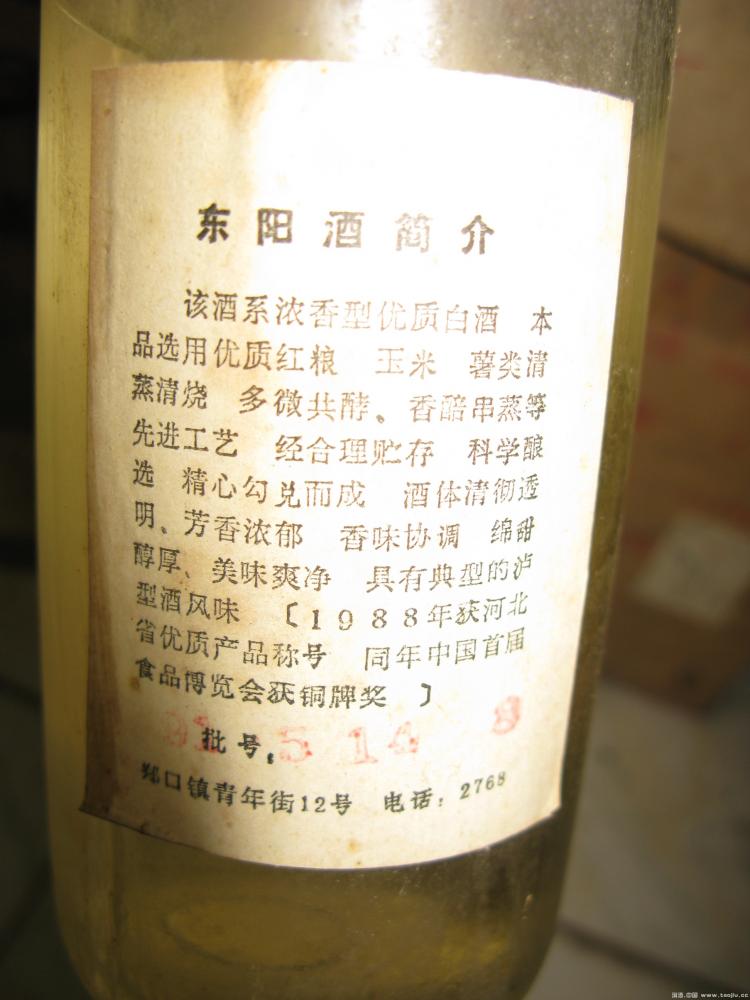 东阳酒简介
该酒系浓香型优质白酒 本
品选用优质红粮 玉米 薯类清
蒸清烧 多微共酵、香醅串蒸等
先进工艺 经合理贮存 科学酿
选 精心勾兑而成 酒体清彻透
明、芳香浓郁 香味协调 绵甜
醇厚、美味爽净 具有典型的泸
型酒风味 〔1988年获河北
省优质产品称号 同年中国首届
食品博览会获铜牌奖 〕
批号: 91 5 14 8
郑口镇青年街12号 电话:2768
www.taojiu.cc